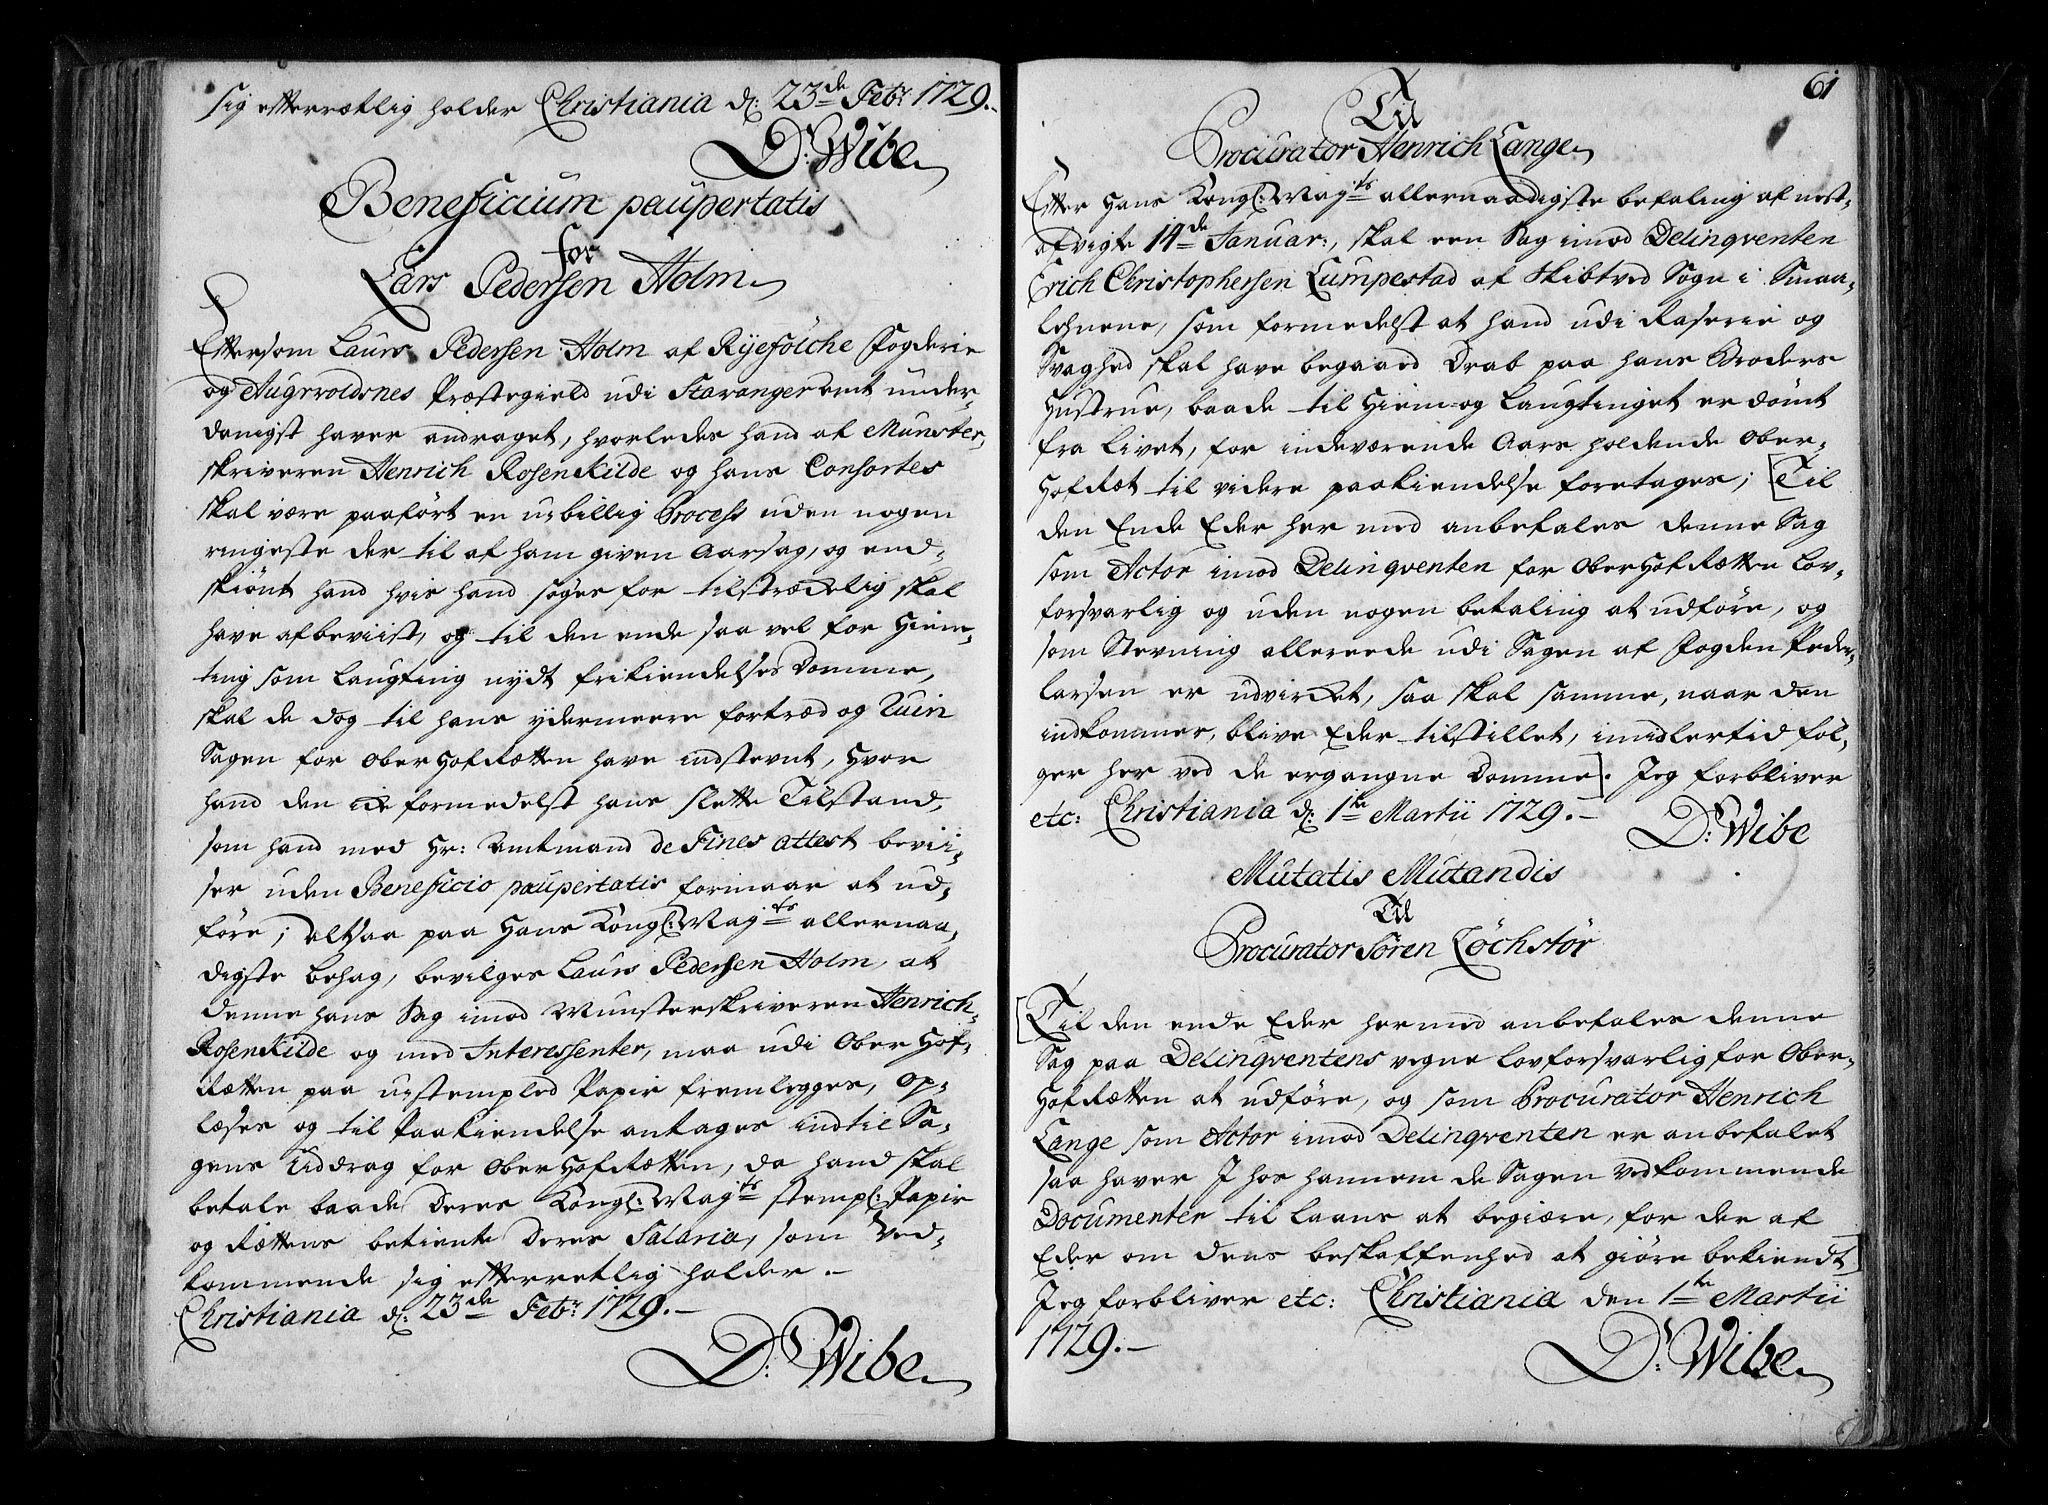 sig efterretlig holder Christiania d: 23de Febr: 1729.-
D: Wibe
Beneficium paupertatis
for
Lars Pedersen Holm
Eftersom Laurs Pedersen Holm af Ryefölche Fogderie
og Augvoldsnes Præstegield udi Stavanger amt under-
danigst haver andraget, hvorledes hand af Munster-
skriveren Henrich Rosenkilde og hans Consortes
skal være paaført en ubillig Process uden nogen
ringeste der til af ham given Aarsag, og end-
skiönt hand hvis hand søges for tilstrædelig skal
have afbeviist, og til den ende saa vel for Hiem-
ting som Laugting nydt frikiendelses Domme,
skal de dog til hans ydermeere fortræd og Ruin
Sagen for OberHofRætten have indstevnt, hvor
hand den formedelst hans slette Tilstand,
som hand med Hr: Amtmand de Fines attest bevii-
ser uden Beneficio paupertatis formaar at ud-
føre; altsaa paa Hans Kongl: Mayts allernaa-
digste behag, bevilges Laurs Pedersen Holm, at
denne hans Sag imod Munsterskriveren Henrich
Rosenkilde og med Interessenter, maa udi Ober Hof-
Rætten paa ustempled Papir fremlegges, op-
læses og til Paakiendelse antages indtil Sa-
gens Uddrag for OberHofRætten, da hand skal
betale baade Deres Kongl: Mayts stempl: Papir
og Rættens betiente Deres Salaria, som Ved-
kommende sig efterretlig holder.-
Christiania d: 23de Febr: 1729.-
D: Wibe
61
Til
Procurator Henrich Lange
Efter Hans Kongl: Mayts allernaadigste befaling af nest-
afvigte 14de Januar:, skal een Sag imod Delinqventen
Erich Christophersen Lumpestad af Skibtved Sogn i Smaa-
lehnene, som formedelst at hand udi Raserie og
Svaghed skal have begaaed Drab paa hans Broders
Hustrue, baade til Hiem- og Laugtinget er dömt
fra Livet, for indeværende Aars holdende Ober-
HofRæt til videre paakiendelse foretages; [Til
den Ende Eder her med anbefales denne Sag
som Actor imod Delinqventen for OberHofRætten Lov-
forsvarlig og uden nogen betaling at udføre, og
som Stevning allereede udi Sagen af Fogden Peder
Larsen er udvirket, saa skal samme, naar den
indkommer, blive Eder tilstillet, imidlertid föl-
ger her ved de ergangne Domme]. Jeg forbliver
etc: Christiania d: 1te Martii 1729.-
D: Wibe
Mutatis Mutandis
Til
Procurator Sören Löchstör
[Til den ende Eder hermed anbefales denne
Sag paa Delinqventens vegne lovforsvarlig for Ober-
HofRætten at udføre, og som Procurator Henrich
Lange som Actor imod Delinqventen er anbefalet
saa haver I hos hannem de Sagen vedkommende
Documenter til Laans at begiære, for der af
Eder om dens beskaffenhed at giöre bekiendt]
Jeg forbliver etc: Christiania den 1te Martii
1729.-
D: Wibe